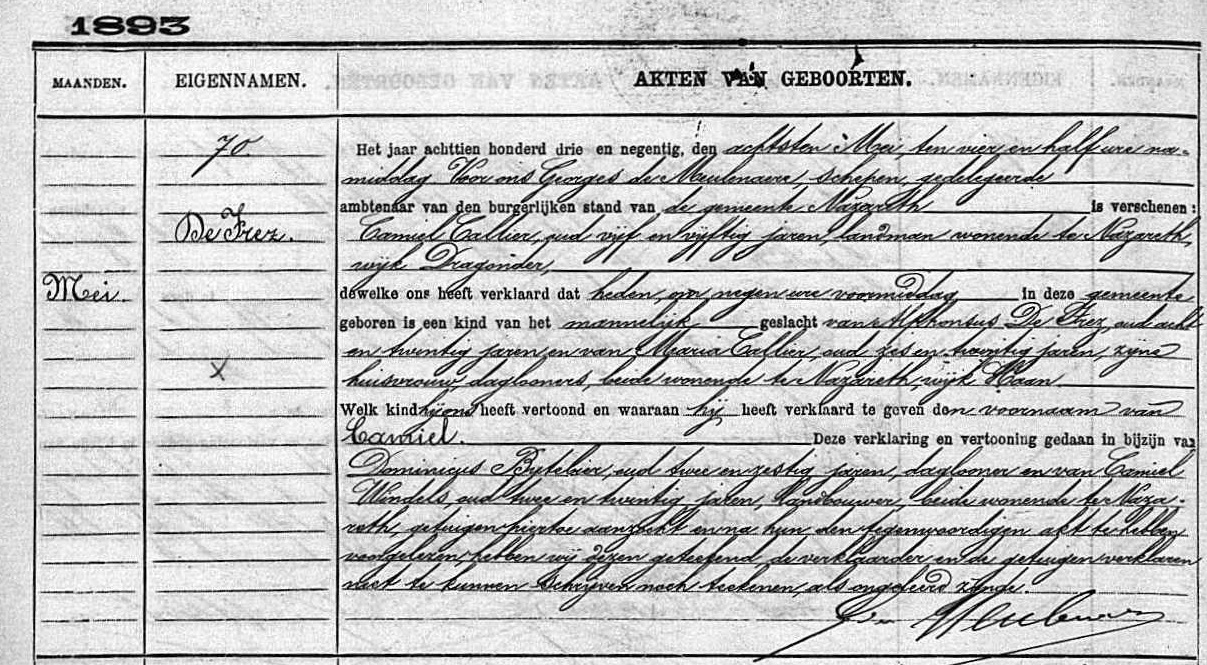 1893
MAANDEN. EIGENNAMEN. AKTEN VAN GEBOORTEN.
70. Het jaar achttien honderd drie en negentig, den achtsten Mei, ten vier en half ure na-
middag Voor ons Georges de Meulenaere, Schepen, gedelegeerde
ambtenaar van den burgerlijken stand van de gemeente Nazareth is verschenen:
De Frez. Camiel Callier, oud vijf en vijftig jaren, landman wonende te Nazareth,
wijk Dragonder,
Mei. dewelke ons heeft verklaard dat heden, om negen ure voormiddag in deze gemeente
geboren is een kind van het mannelijk geslacht van Alphontus De Frez, oud acht
en twintig jaren, en van Maria Callier, oud zes en twintig jaren, zijne
X huisvrouw, daglooners, beide wonende te Nazareth, wijk Haan
Welk kind hij ons heeft vertoond en waaraan hij heeft verklaard te geven den voornaam van
Camiel. Deze verklaring en vertooning gedaan in bijzijn van
Dominicus Bijtebier, oud twee en zestig jaren, daglooner en van Camiel
Windels, oud twee en twintig jaren, Landbouwer, beide wonende te Naza-
reth, getuigen hiertoe aanzocht en na hun den tegenwoordigen akt te hebben
voorgelezen, hebben wij dezen geteekend, de verklaarder en de getuigen verklaren
niet te kunnen schrijven noch teekenen, als ongeleerd zynde.